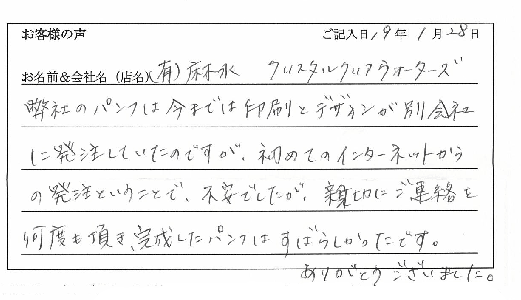 お客様の声 ご記入日19年1月28日
お名前&会社名(店名)(有)麻水 クリスタルクリアウォーターズ
弊社のパンフは今までは印刷とデザインが別会社
に発注していたのですが、初めてのインターネットから
の発注ということで、不安でしたが、親切にご連絡を
何度も頂き、完成したパンフはすばらしかったです。
ありがとうございました。